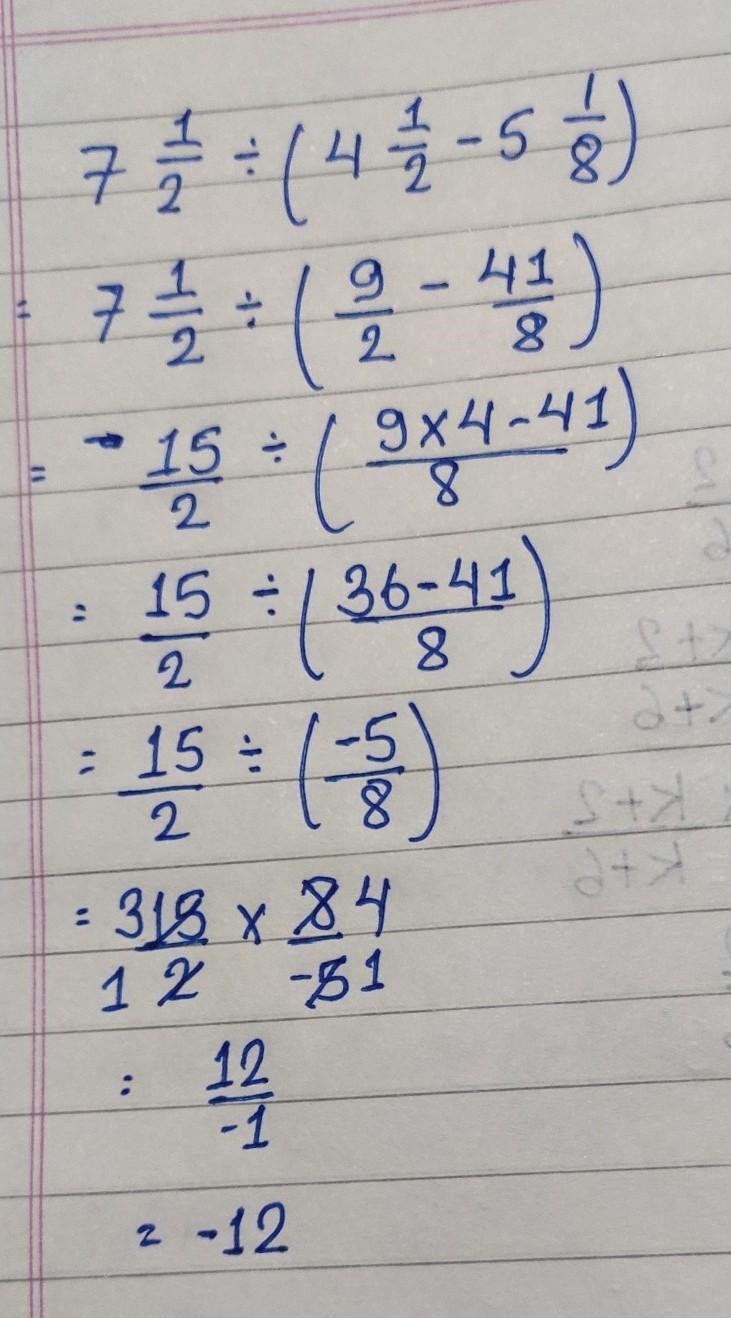 7 1/2 ÷ (4 1/2 - 5 1/8)
= 7 1/2 ÷ (9/2 - 41/8)
= 15/2 ÷ (9×4-41/8)
= 15/2 ÷ (36-41/8)
= 15/2 ÷ (-5/8)
= 3 15/1 2 × 8 4/-5 1
= 12/-1
= -12